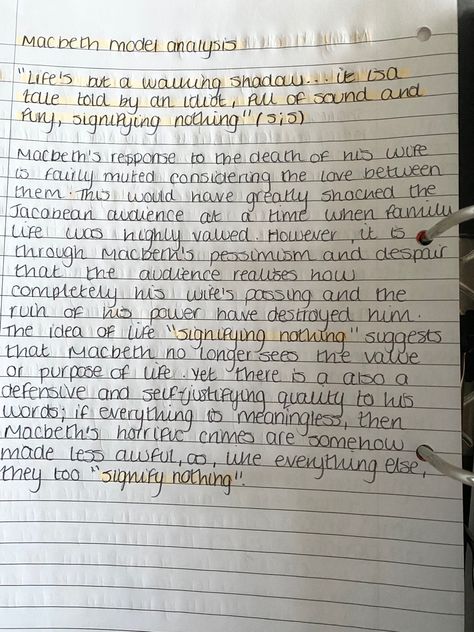 Macbeth model analysis
"Life's but a walking shadow... it is a
tale told by an idiot, full of sound and
fury, signifying nothing" (5;5)
Macbeth's response to the death of his wife
is fairly muted considering the love between
them. This would have greatly shocked the
Jacobean audience at a time when family
life was highly valued. However, it is
through Macbeth's pessimism and despair
that the audience realises how
completely his wife's passing and the
ruin of his power have destroyed him.
The idea of life "signifying nothing" suggests
that Macbeth no longer sees the value
or purpose of life. Yet there is a also a
defensive and self-justifying quality to his
words; if everything is meaningless, then
Macbeth's horrific crimes are somehow
made less awful, as, like everything else,
they too "signify nothing".